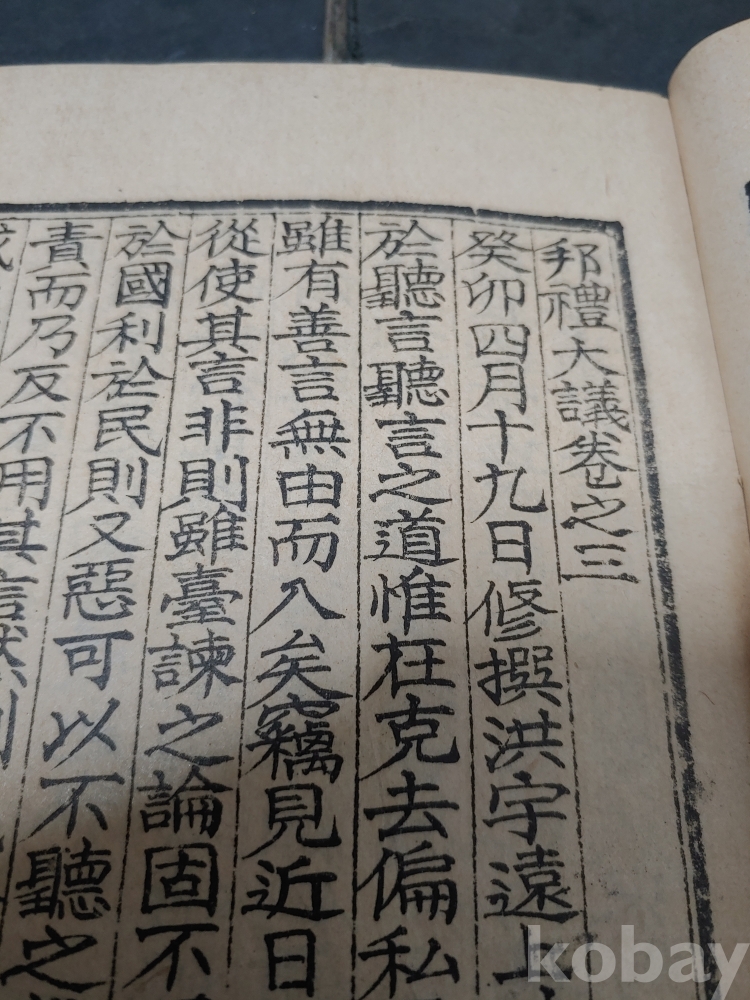 邦禮大議卷之三
癸卯四月十九日修撰洪宇遠上
於聽言聽言之道惟在克去偏私
雖有善言無由而入矣竊見近日
從使其言非則雖臺諫之論固不
於國利於民則又惡可以不聽之
責而乃反不用其言然則
kobay